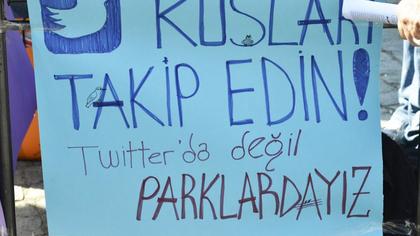 KUŞLARI
TAKİP EDİN!
Twitter'da değil
PARKLARDAYIZ